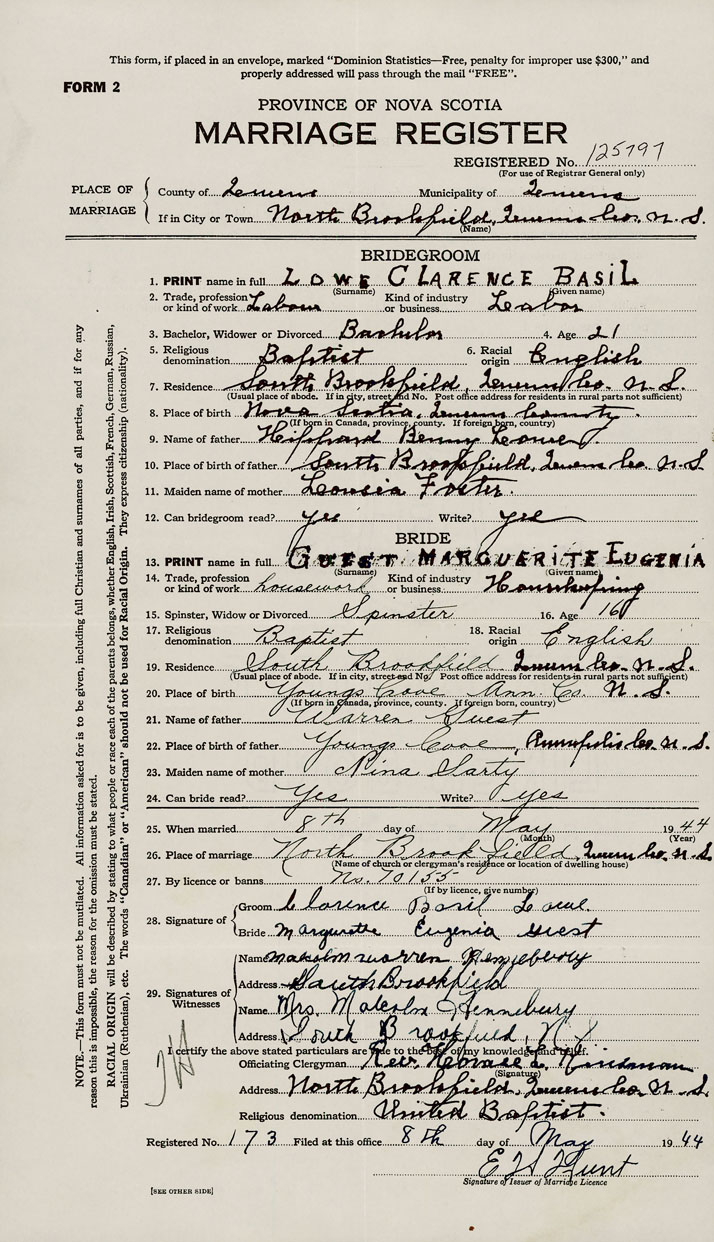 This form, if placed in an envelope, marked "Dominion Statistics—Free, penalty for improper use $300," and
properly addressed will pass through the mail "FREE".
FORM 2
PROVINCE OF NOVA SCOTIA
MARRIAGE REGISTER
REGISTERED No. 125797
(For use of Registrar General only)
PLACE OF MARRIAGE
County of Queens Municipality of Queens
If in City or Town North Brookfield, Queens Co. N.S.
(Name)
BRIDEGROOM
1. PRINT name in full LOWE CLARENCE BASIL
(Surname) (Given name)
2. Trade, profession or kind of work Labour Kind of industry or business Labor
3. Bachelor, Widower or Divorced Bachelor 4. Age 21
5. Religious denomination Baptist 6. Racial origin English
7. Residence South Brookfield, Queens Co. N.S.
(Usual place of abode. If in city, street and No. Post office address for residents in rural parts not sufficient)
8. Place of birth Nova Scotia, Queens County.
(If born in Canada, province, county. If foreign born, country)
9. Name of father Benny Lowe
10. Place of birth of father South Brookfield, Queens Co. N.S
11. Maiden name of mother Foster.
12. Can bridegroom read? yes Write? yes
BRIDE
13. PRINT name in full GUEST MARGUERITE EUGENIA
(Surname) (Given name)
14. Trade, profession or kind of work housework Kind of industry or business Housekeeping
15. Spinster, Widow or Divorced Spinster 16. Age 16
17. Religious denomination Baptist 18. Racial origin English
19. Residence South Brookfield Queens Co. N.S.
(Usual place of abode. If in city, street and No. Post office address for residents in rural parts not sufficient)
20. Place of birth Youngs Cove Ann. Co. N.S.
(If born in Canada, province, county. If foreign born, country)
21. Name of father Warren Guest
22. Place of birth of father Youngs Cove, Annapolis Co. N.S.
23. Maiden name of mother Nina Sarty
24. Can bride read? Yes Write? yes
25. When married 8th day of May 1944
(Month) (Year)
26. Place of marriage North Brookfield, Queens Co. N.S.
(Name of church or clergyman's residence or location of dwelling house)
27. By licence or banns No. 70155
(If by licence, give number)
28. Signature of
Groom Clarence Basil Lowe
Bride Marguerite Eugenia Guest
29. Signatures of Witnesses
Name Malcolm Warren
Address South Brookfield
Name Mrs. Malcolm Hennebury
Address South Brookfield, N.S
I certify the above stated particulars are true to the best of my knowledge and belief.
Officiating Clergyman Rev. Horace Kinsman
(Signature)
Address North Brookfield, Queens Co. N.S.
Religious denomination United Baptist.
Registered No. 173 Filed at this office 8th day of May 1944
E H Hunt
Signature of Issuer of Marriage Licence
[SEE OTHER SIDE]
NOTE.—This form must not be mutilated. All information asked for is to be given, including full Christian and surnames of all parties, and if for any
reason this is impossible, the reason for the omission must be stated.
RACIAL ORIGIN will be described by stating to what people or race each of the parents belongs, whether English, Irish, Scottish, French, German, Russian,
Ukrainian (Ruthenian), etc. The words "Canadian" or "American" should not be used for Racial Origin. They express citizenship (nationality).